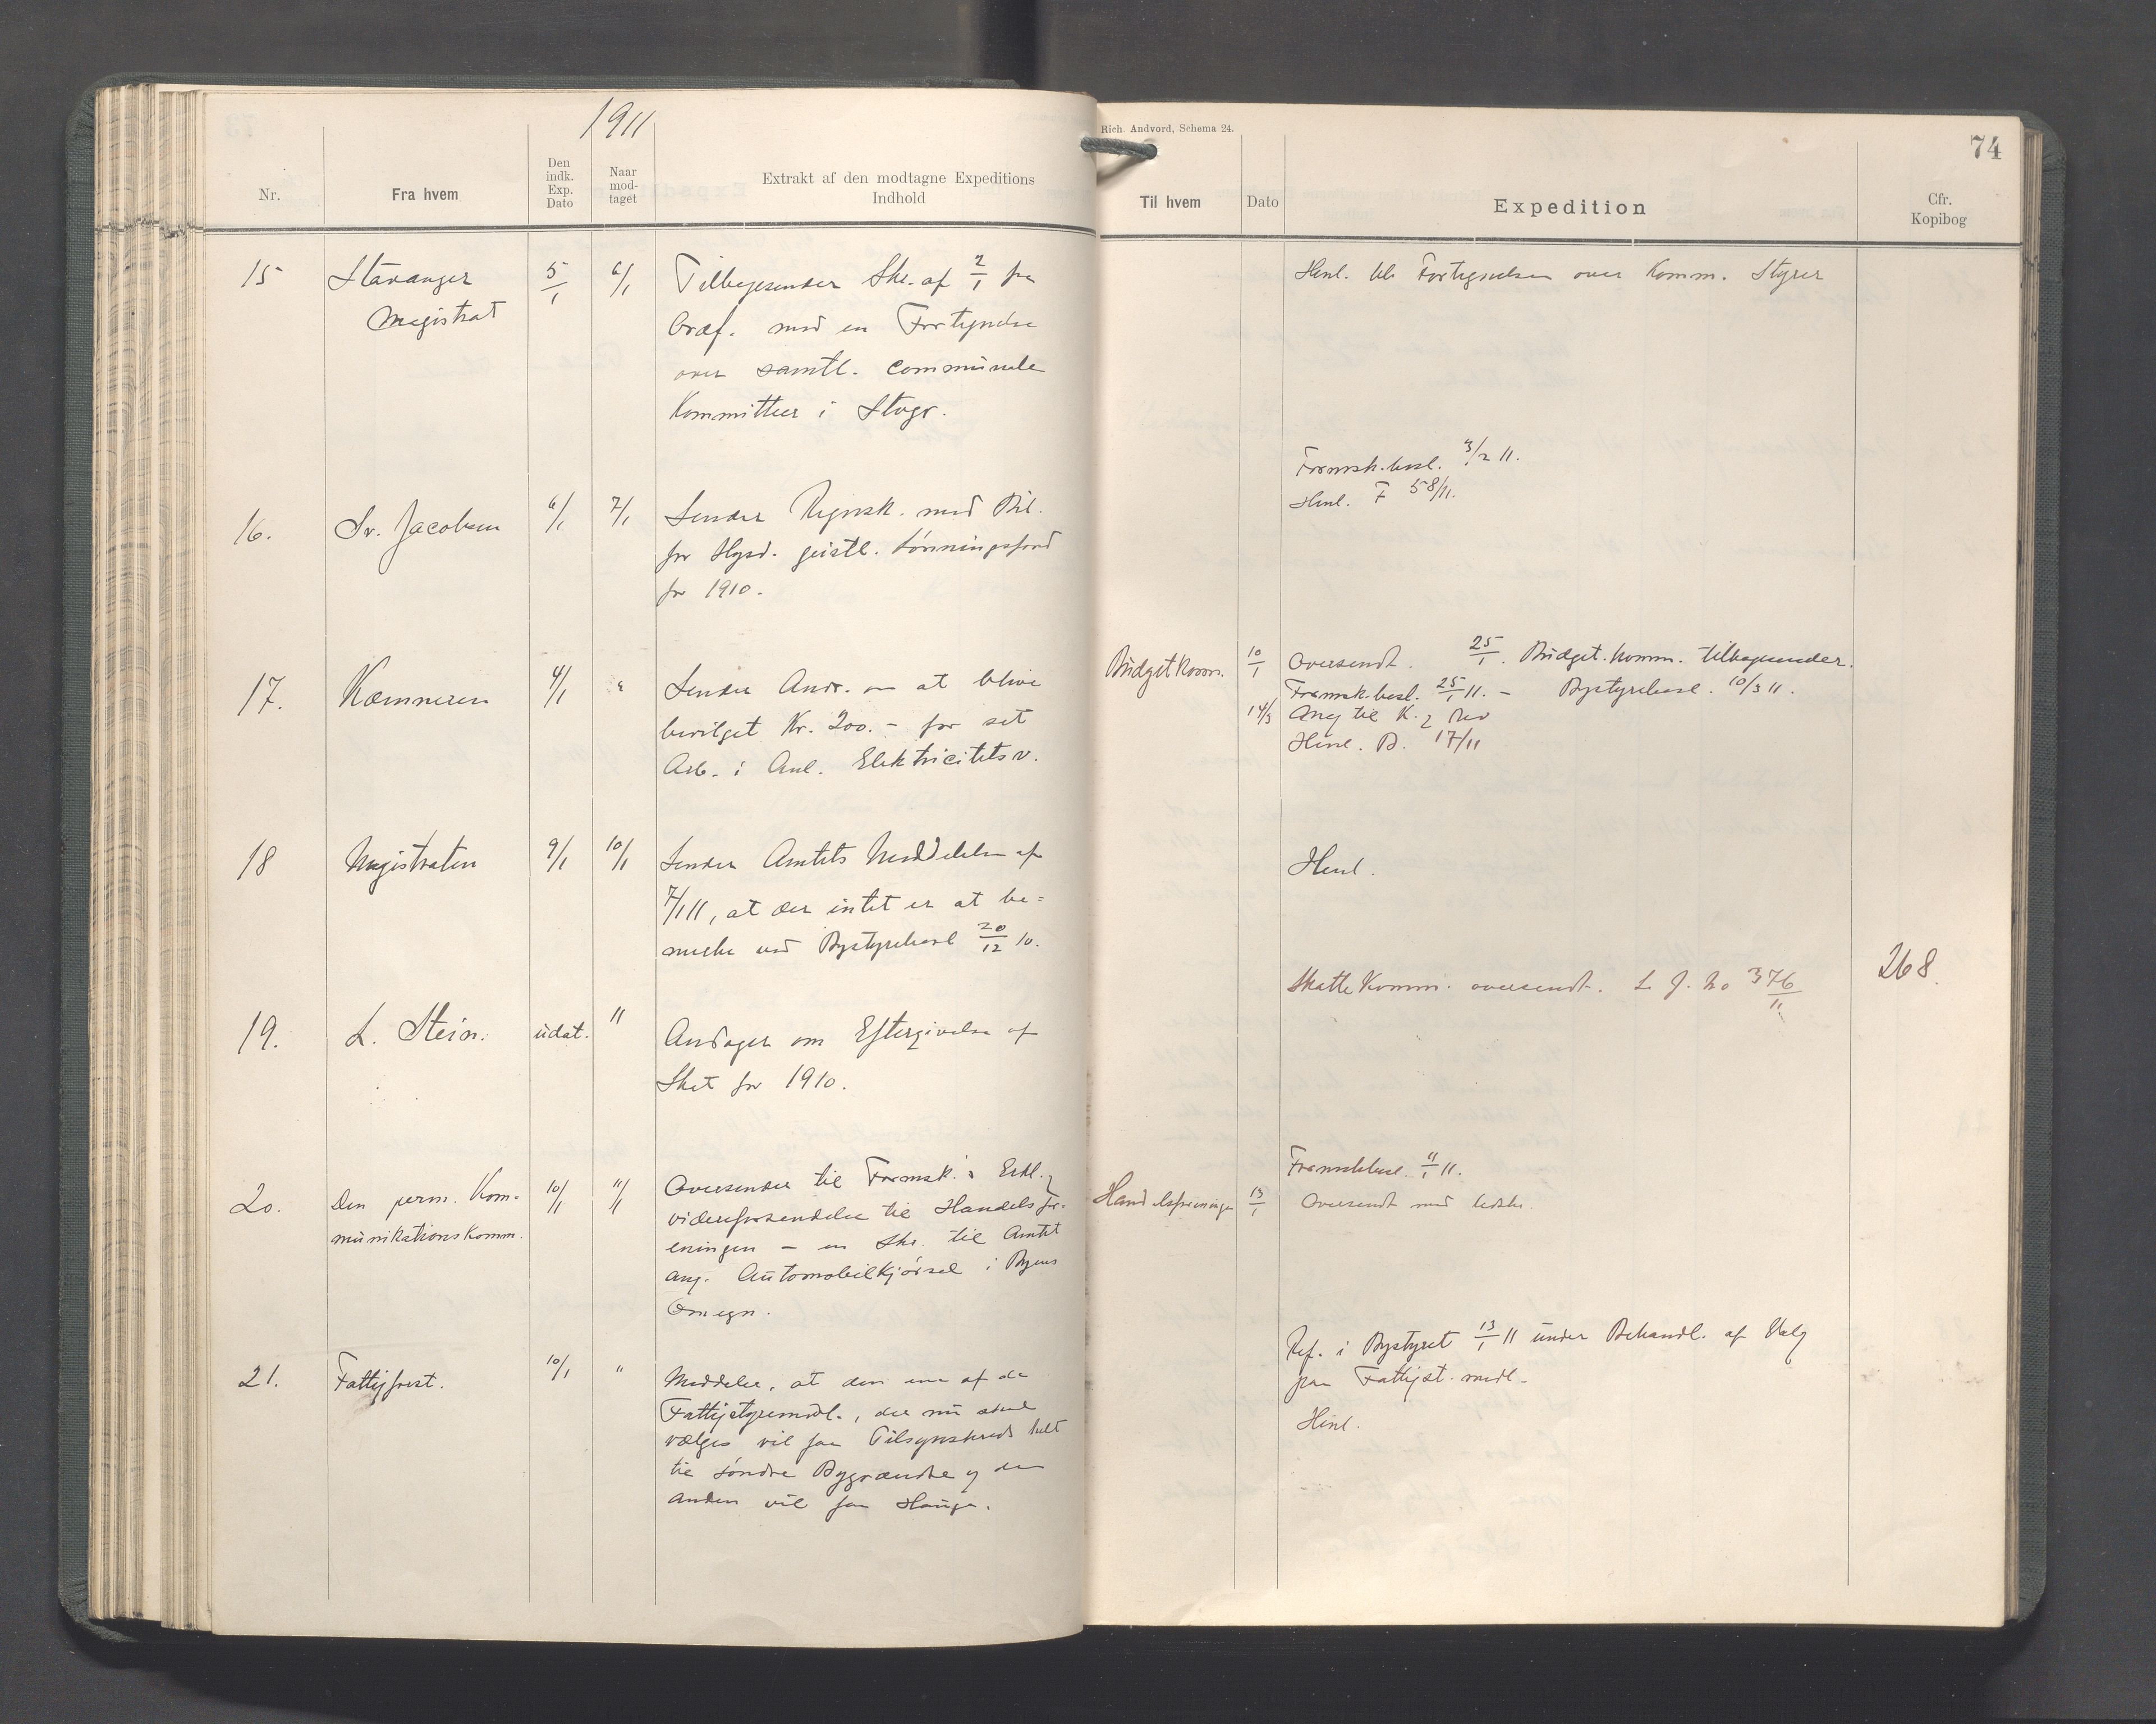 1911
Nr.
Fra hvem
Den indk. Exp. Dato
Naar mod-taget
Extrakt af den modtagne Expeditions Indhold
Rich. Andvord, Schema 24.
74
Til hvem
Dato
Expedition
Cfr. Kopibog
15 Stavanger 5/1 6/1 Tilbagesender Skr. af 2/1 fra
Magistrat
Ordf. med en Fortegnelse
over samtl. communale
Kommitteer i Stvgr.
Henl. til Fortegnelsen over Komm. Styrer
16. Sv. Jacobsen 6/1 7/1 Sender Regnsk. med Bil.
for Hgsd. geistl. Lønningsfond
for 1910.
Formsk.besl. 3/2 11.
Henl. F 58/11.
17. Kæmneren 4/1 " Sender Andr. om at blive
bevilget Kr. 200.- for sit
Arb. i Anl. Elektricitetsv.
Budgetkomm. 10/1 Oversendt. 25/1. Budget.komm. tilbagesender.
Formsk.besl. 25/1 11. - Bystyrebesl. 10/3 11.
14/3 Anv til K. & Rev
Henl. B. 17/11
18 Magistraten 9/1 10/1 Sender Amtets Meddelelse af
7/1 11, at der intet er at be=
merke ved Bystyrebesl 20/12 10.
Henl.
19. L. Stein. udat. " Andrager om Eftergivelse af
Skat for 1910.
Skattekomm. oversendt. L J. No 376/11
268.
20. Den perm. Kom= 10/1 11/1 Oversender til Formsk.s Erkl. &
munikationskomm.
videreforsendelse til Handelsfor-
eningen - en Skr. til Amtet
ang. Automobilkjørsel i Byens
Omegn.
Formskbesl. 11/1 11.
Handelsforeningen 13/1 Oversendt med
21. Fattigforst. 10/1 " Meddeler, at den ene af de
Fattigstyremedl., der nu skal
vælges vil faa Tilsynskreds helt
til søndre Bygrændse og den
anden vil faa Hauge.
Ref. i Bystyret 13/1 11 under Behandl. af Valg
paa Fattigst. medl.
Henl.